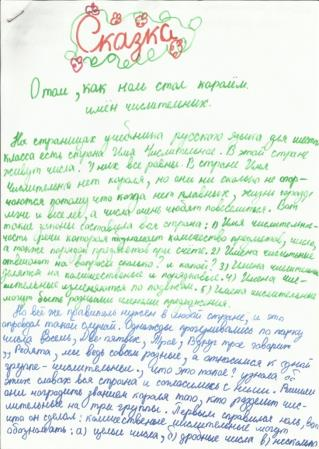 Сказка
О том, как ноль стал королём
имён числительных.
На страницах учебника русского языка для шестого
класса есть страна Имя Числительное. В этой стране
живут числа. У них все равны. В стране Имя
Числительно нет короля, но они ни сколько не огор-
чаются потому что когда нет главных, жизни гораздо
легче и веселее, а числа очень любят повеселиться. Вот
такие законы составила вся страна: 1) Имя числительное-
часть речи которая обозначает количество предметов, число,
а также порядок предметов при счёте. 2) Имена числительные
отвечают на вопросы сколько? и какой? 3) Имена числительные
делятся на количественные и порядковые. 4) Имена чис-
лительные изменяются по падежам. 5) Имена числительные
могут быть разными членами предложения.
Но всё же правило нужно в любой стране, и это
оправдал такой случай. Однажды прогуливались по парку
числа Восемь, Две пятых, Трое. Вдруг трое говорит
„Ребята, мы ведь совсем разные, а относимся к одной
группе- числительные. Что это такое? узнала об
этих словах вся страна и согласились с ними. Решили
они наградить званием короля того, кто разделит чис-
лительные на три группы. Первым справился ноль, вот
что он сделал: количественные числительные могут
обозначать: а) целые числа, б) дробные числа в) несколько